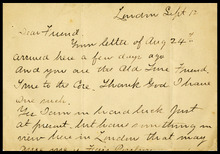 London Sept 12
Dear Friend
Your letter of Aug 24th
arrived here a few days ago
and you are the Old True Friend,
True to the Core. Thank God I have
one such.
Yes I am in hard luck just
at present, but have something in
view here in London that may